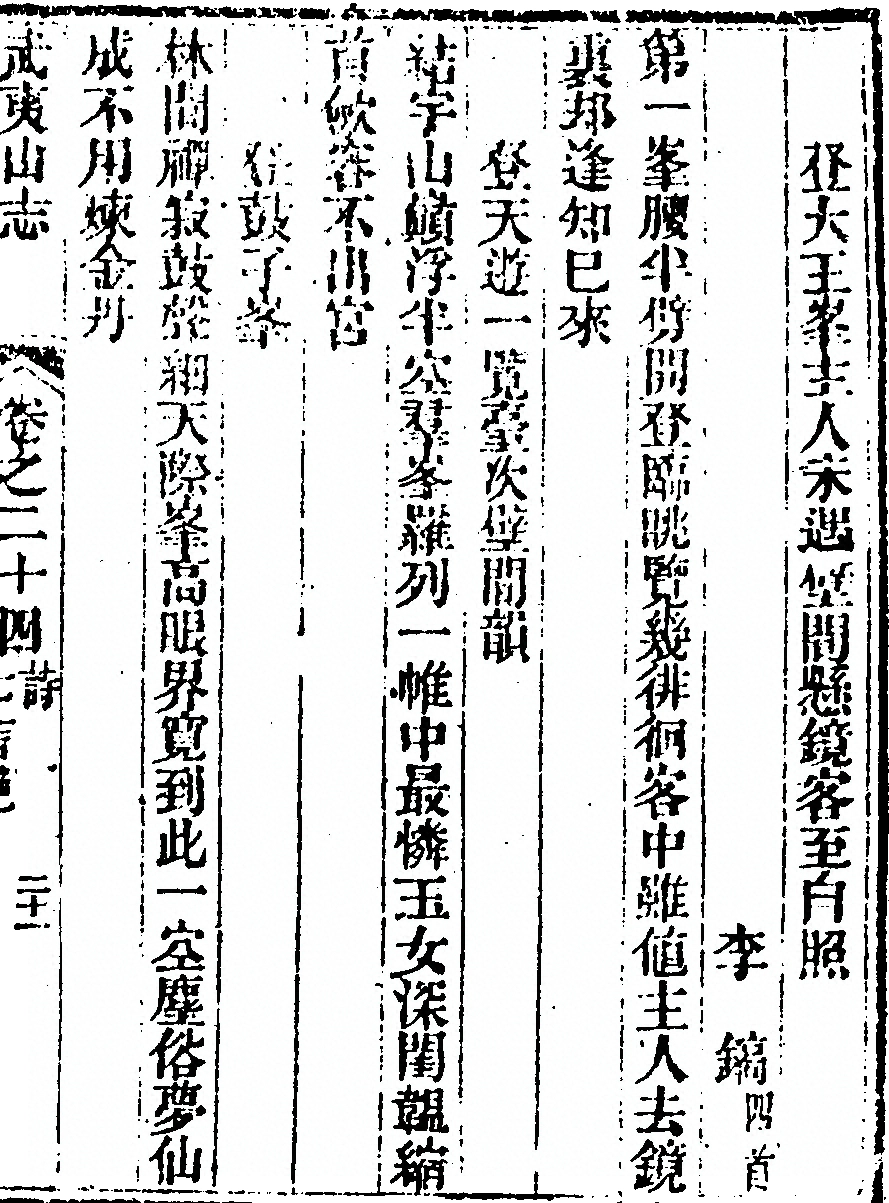 登大王峯主人未遇壁間懸鏡客至自照
李　鎬四首
第一峯腰半劈開登臨眺覽幾徘徊客中雖値主人去鏡
裏却逢知已來
登天遊一覽臺次壁間韻
結宇山巔浮半空羣峯羅列一帷中最憐玉女深閨韞縮
首歛容不出宮
登鼓子峯
林間禪寂鼓聲細天際峯高眼界寬到此一空塵俗夢仙
成不用煉金丹
武夷山志
卷之二十四 詩 七言絶 二十一